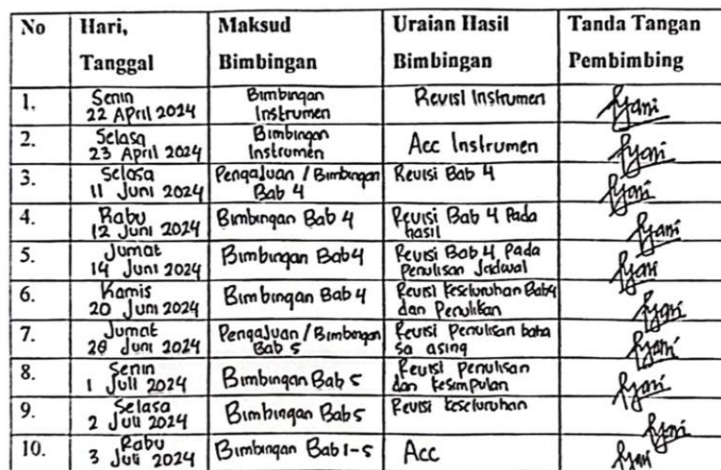 No Hari, Tanggal Maksud Bimbingan Uraian Hasil Bimbingan Tanda Tangan Pembimbing
1. Senin 22 April 2024 Bimbingan Instrumen Revisi Instrumen
2. Selasa 23 April 2024 Bimbingan Instrumen Acc Instrumen
3. Selasa 11 Juni 2024 Pengajuan / Bimbingan Bab 4 Revisi Bab 4
4. Rabu 12 Juni 2024 Bimbingan Bab 4 Revisi Bab 4 Pada hasil
5. Jumat 14 Juni 2024 Bimbingan Bab 4 Revisi Bab 4 Pada Penulisan Jadwal
6. Kamis 20 Juni 2024 Bimbingan Bab 4 Revisi Keseluruhan Bab 4 dan Penulisan
7. Jumat 28 Juni 2024 Pengajuan / Bimbingan Bab 5 Revisi Penulisan baha sa asing
8. Senin 1 Juli 2024 Bimbingan Bab 5 Revisi Penulisan dan Kesimpulan
9. Selasa 2 Juli 2024 Bimbingan Bab 5 Revisi Keseluruhan
10. Rabu 3 Juli 2024 Bimbingan Bab 1-5 Acc